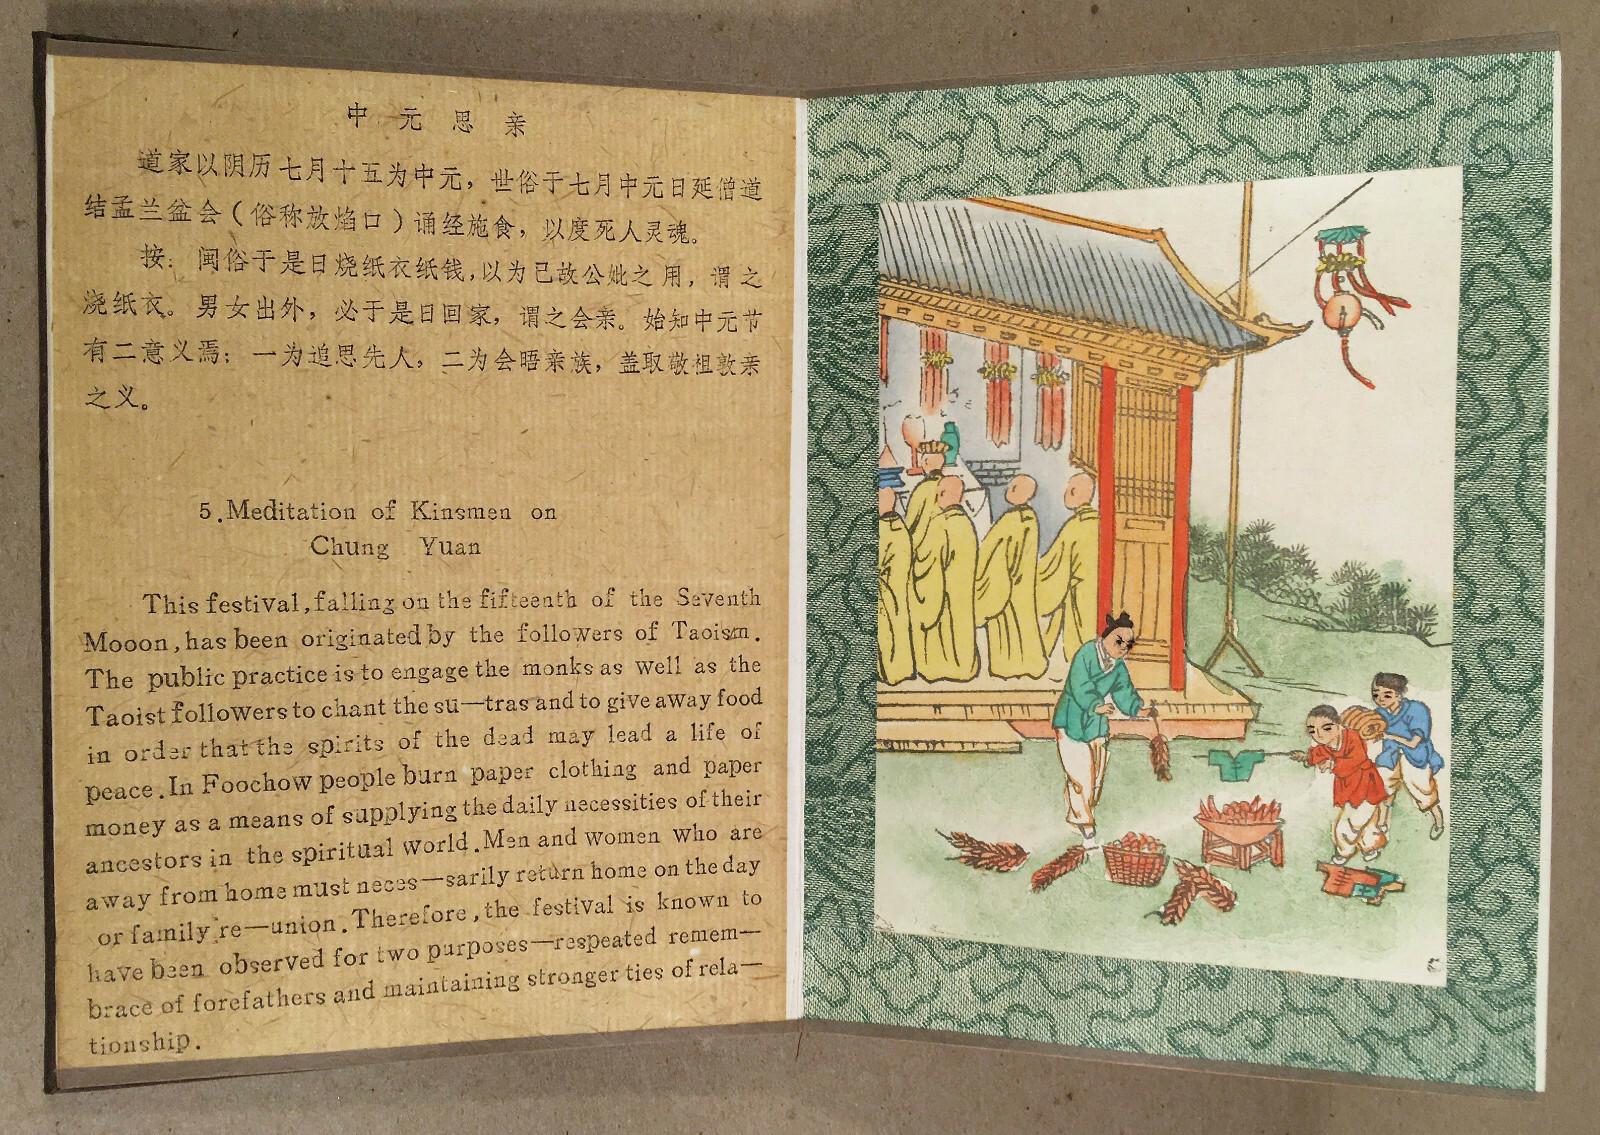 中元思亲
道家以阴历七月十五为中元，世俗于七月中元日延僧道
结孟兰盆会（俗称放焰口）诵经施食，以度死人灵魂。
按：闽俗于是日烧纸衣纸钱，以为已故公妣之用，谓之
浇纸衣。男女出外，必于是日回家，谓之会亲。始知中元节
有二意义焉；一为追思先人，二为会晤亲族，盖取敬祖敦亲
之义。
5.Meditation of Kinsmen on
Chung Yuan
This festival,falling on the fifteenth of the Seventh
Mooon,has been originated by the followers of Taoism.
The public practice is to engage the monks as well as the
Taoist followers to chant the su—tras and to give away food
in order that the spirits of the dead may lead a life of
peace.In Foochow people burn paper clothing and paper
money as a means of supplying the daily necessities of their
ancestors in the spiritual world.Men and women who are
away from home must neces—sarily return home on the day
or family re—union.Therefore,the festival is known to
have been observed for two purposes—respeated remem—
brace of forefathers and maintaining stronger ties of rela—
tionship.